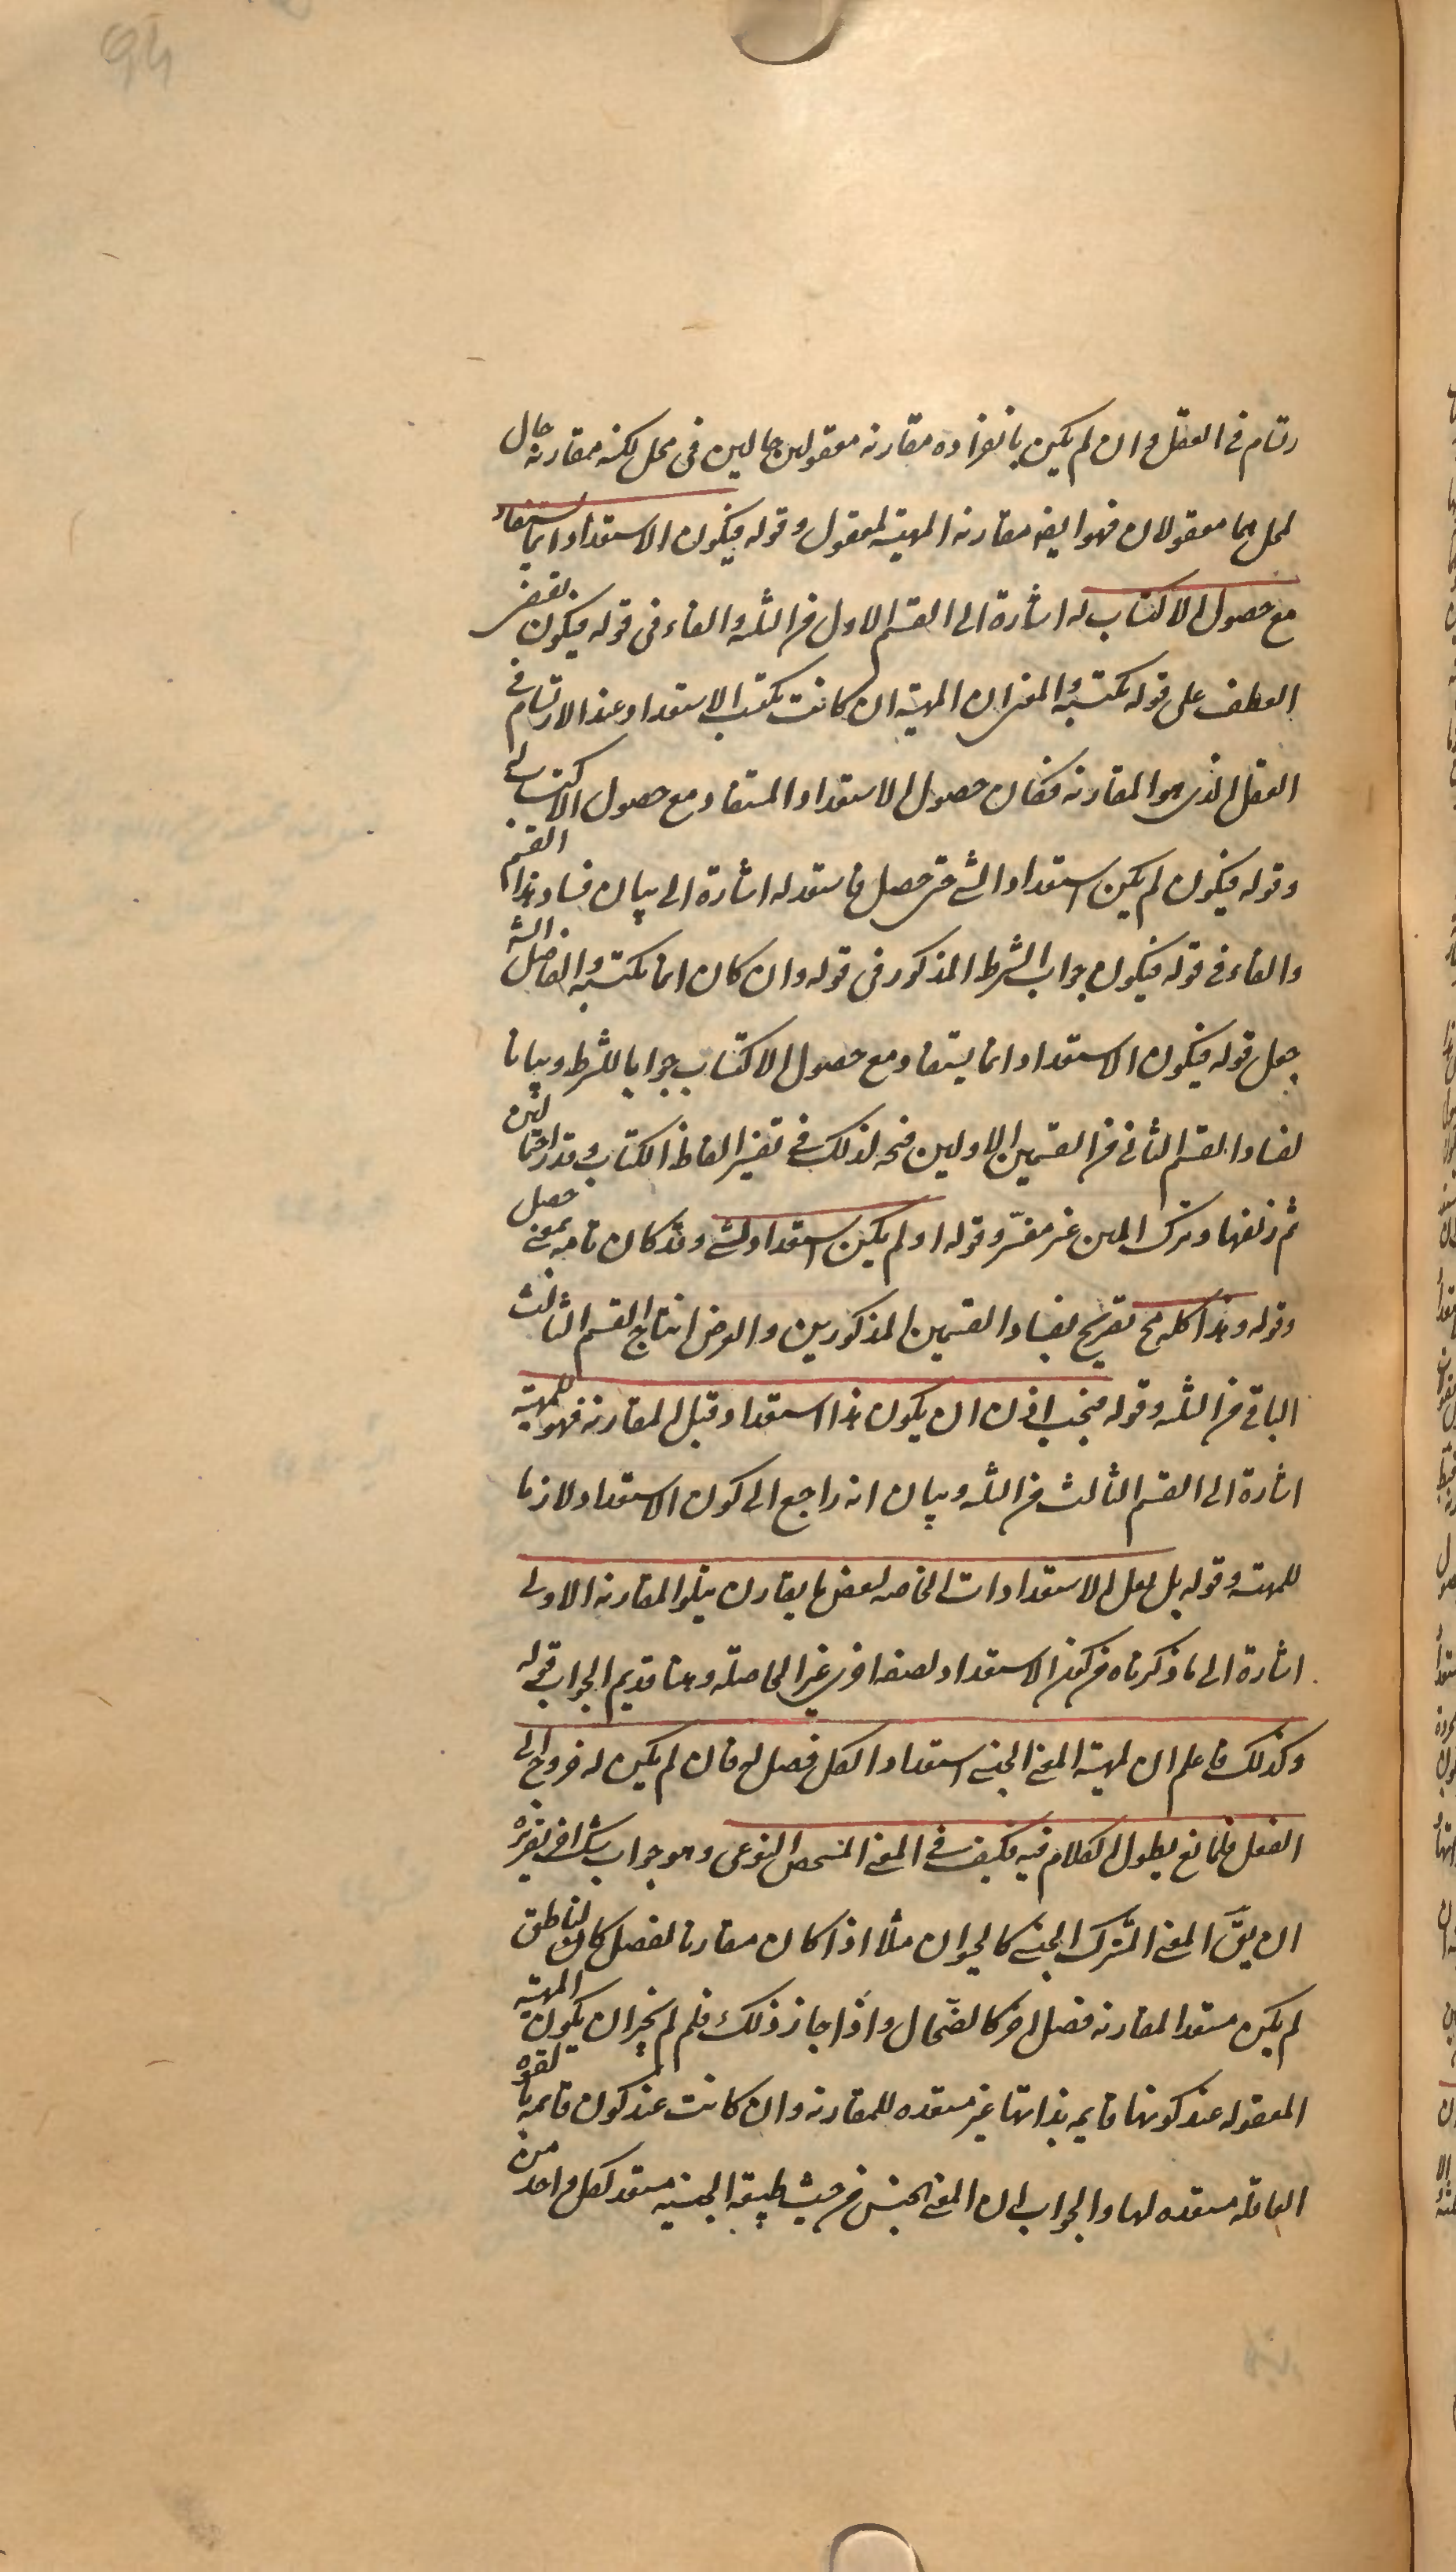 94
رتسام فی العقل وان لم یکن بانفراده مقارنه معقولین حالین فی محل لکنه مقارنه حال
لمحل هما معقولان فهو ایضه مقارنه المهیته لمعقول وقوله فیکون الاستعداد انما یستفاد
مع حصول الاکتساب له اشارة الی القسم الاول من الثلثه والفاء فی قوله فیکون تقتضی
العطف علی قوله یکتسبه والمعنی ان المهیته ان کانت یکتسب الاستعداد عند الارتسام فی
العقل الذی هو المقارنه فکان حصول الاستعداد المستفاد مع حصول الاکتساب له
وقوله فیکون لم یکن استعداد الشی حتی حصل فاستعد له اشارة الی بیان فساد هذا القسم
والفاء فی قوله فیکون جواب الشرط المذکور فی قوله وان کان انما یکتسبه والفاضل الشه
جعل قوله فیکون الاستعداد انما یستفاد مع حصول الاکتساب جوابا للشرط وبیانا
لفساد القسم الثانی من القسمین الاولین فتحیر لذلک فی تفسیر الفاظ الکتاب وقدر احتمالین
ثم زیفها وترک المتن غیر مفسّر وقوله او لم یکن استعداد لشی وقد کان تامه بمعنی حصل
وقوله وهذا کله مح تصریح بفساد القسمین المذکورین والغرض انتاج القسم الثالث
الباقی من الثلثه وقوله فیجب اذن ان یکون هذا الاستعداد قبل المقارنه فهو للمهیته
اشارة الی القسم الثالث من الثلثه وبیان انه راجع الی کون الاستعداد لازما
للمهیته وقوله بل لعل الاستعدادات الخاصه لبعض ما یقارن یتلو المقارنه الاولی
اشارة الی ما ذکرناه من کون الاستعداد لصفه اخری غیر الحاصله وهنا قد تم الجواب قوله
وکذلک فاعلم ان لمهیته المعنی الجنسی استعداد الکل فصل له فان لم یکن له خروج الی
الفعل فلمانع یطول الکلام فیه فکیف فی المعنی المتحصل النوعی وهو جواب شک اخر تقریره
ان یقّ المعنی المشترک الجنسی کالحیوان مثلا اذا کان مقارنا لفصل کان کالناطق
لم یکن مستعدا لمقارنه فصل اخر کالصهّال واذا جاز ذلک فلم لم یجز ان یکون المهیته
المعقوله عند کونها قایمه بذاتها غیر مستعده للمقارنه وان کانت عند کون قایمه بالقوه
العاقله مستعده لها والجواب ان المعنی الجنسی من حیث طبیعة الجنسیه مستعد لکل واحد من